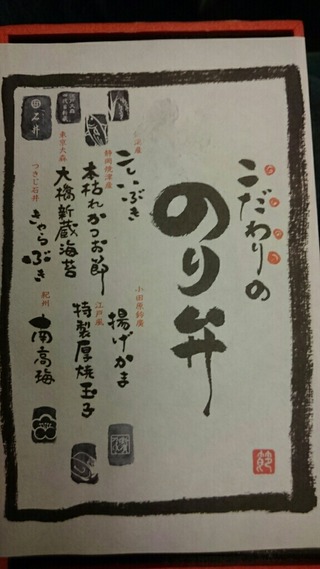 こだわりの
のり弁
こしいぶき
小田原鈴廣
揚げかま
静岡焼津産
本枯れかつお節
江戸風
特製厚焼玉子
東京大森
大橋新蔵海苔
つきじ石井
きゃらぶき
紀州
南高梅
石井